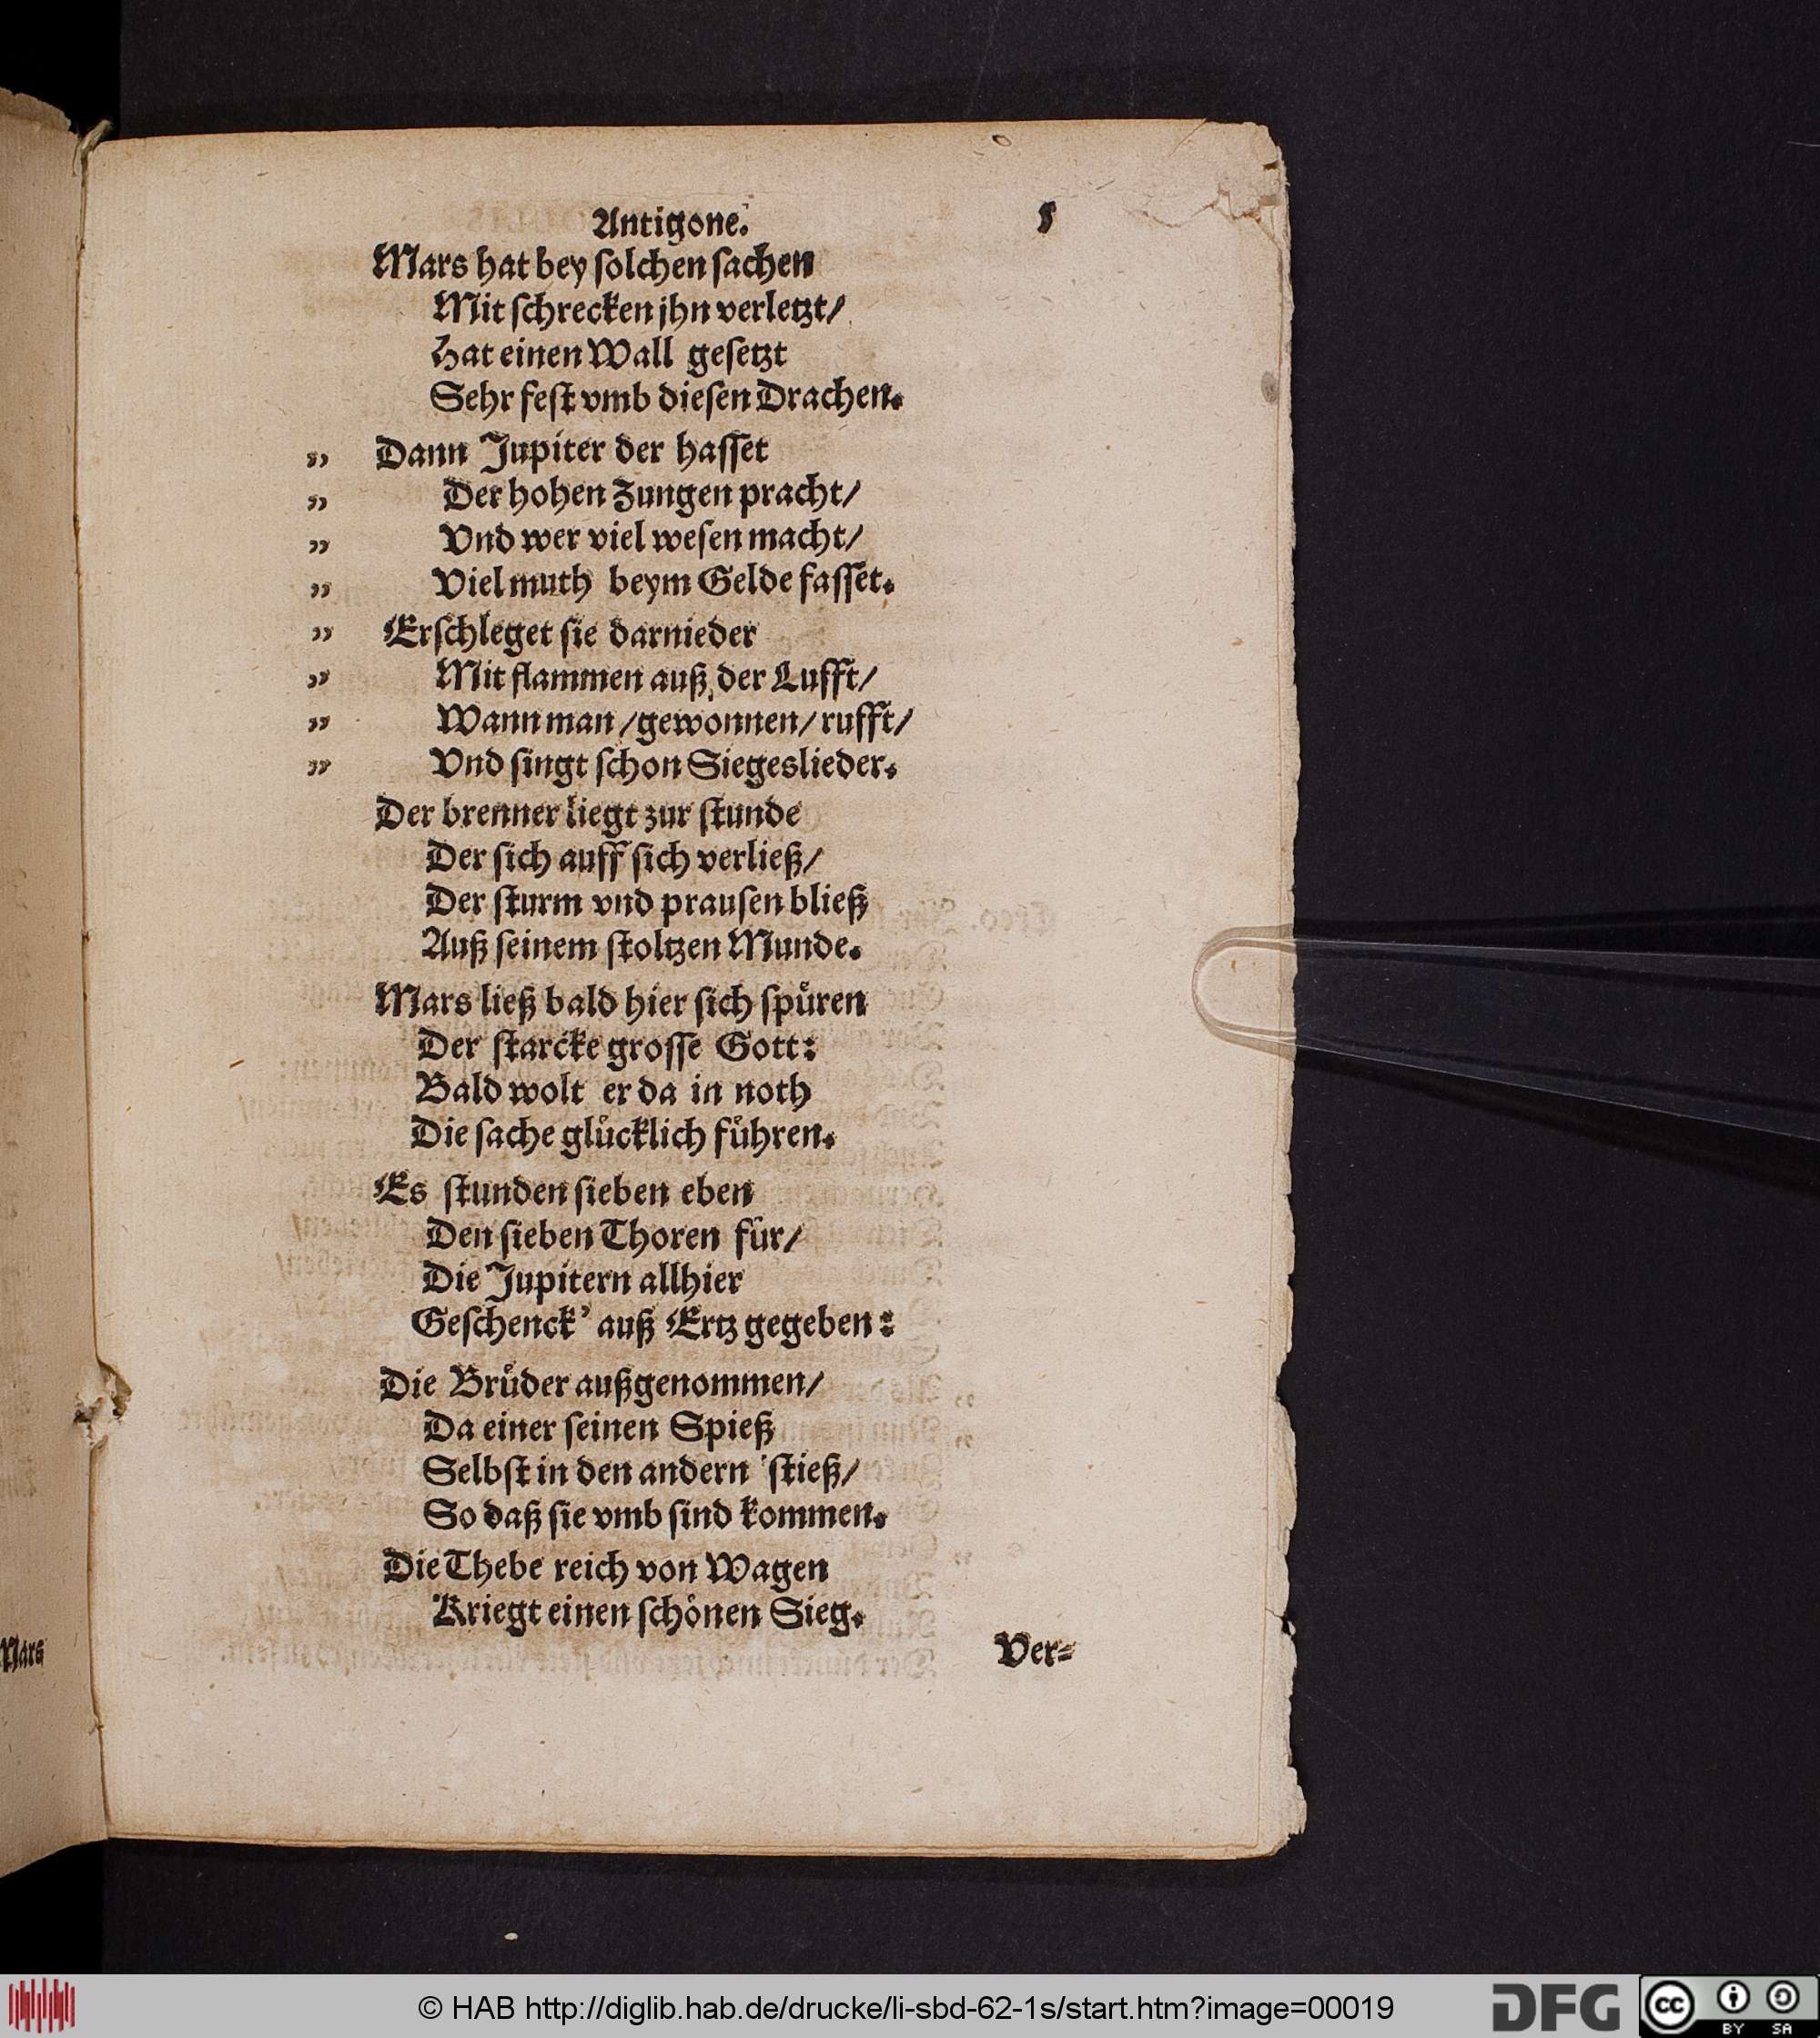 Antigone. 5
Mars hat bey ſolchen ſachen
Mit ſchrecken jhn verletzt/
Hat einen Wall geſetzt
Sehr feſt vmb dieſen Drachen.
„ Dann Jupiter der haſſet
„ Der hohen Zungen pracht/
„ Vnd wer viel weſen macht/
„ Viel muth beym Gelde faſſet.
„ Er ſchleget ſie darnieder
„ Mit flammen auß der Lufft/
„ Wann man /gewonnen/ rufft/
„ Vnd ſingt ſchon Siegeslieder.
Der brenner liegt zur ſtunde
Der ſich auff ſich verließ/
Der ſturm vnd prauſen bließ
Auß ſeinem ſtoltzen Munde.
Mars ließ bald hier ſich ſpuͤren
Der ſtarcke groſſe Gott:
Bald wolt er da in noth
Die ſache gluͤcklich fuͤhren.
Es ſtunden ſieben eben
Den ſieben Thoren fuͤr/
Die Jupitern allhier
Geſchenck' auß Ertz gegeben:
Die Bruͤder außgenommen/
Da einer ſeinen Spieß
Selbſt in den andern ſtieß/
So daß ſie vmb ſind kommen.
Die Thebe reich von Wagen
Kriegt einen ſchoͤnen Sieg.
Ver⸗
Mars
© HAB http://diglib.hab.de/drucke/li-sbd-62-1s/start.htm?image=00019
DFG
cc BY SA